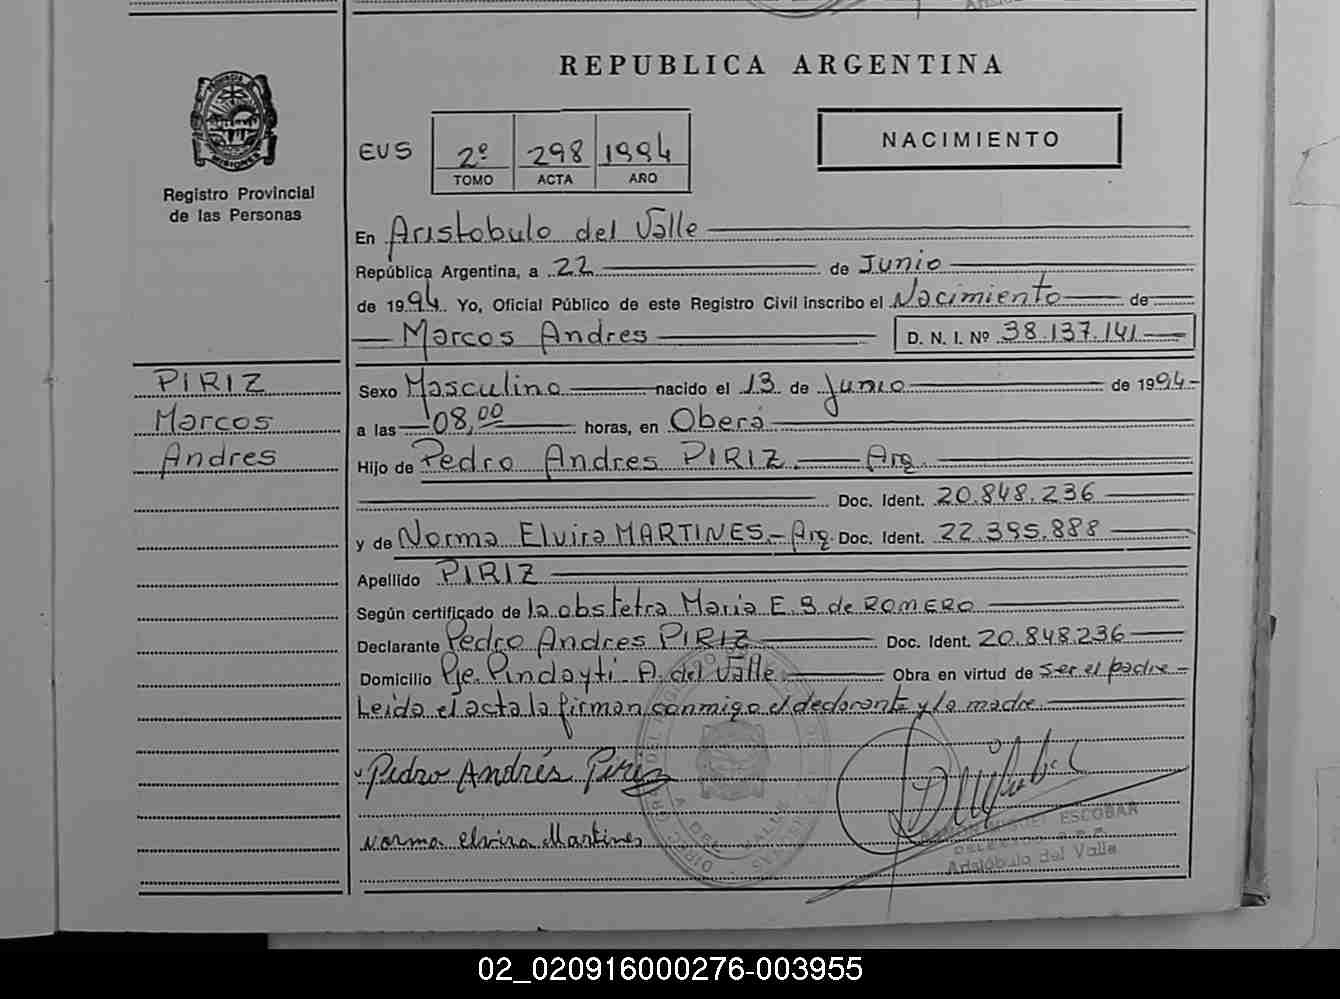 REPUBLICA ARGENTINA
PROVINCIA DE
MISIONES
Registro Provincial
de las Personas
EUS
2º 298 1994
TOMO ACTA AÑO
NACIMIENTO
En Aristobulo del Valle
República Argentina, a 22 de Junio
de 1994. Yo, Oficial Público de este Registro Civil inscribo el Nacimiento de
Marcos Andres D. N. I. Nº 38.137.141
PIRIZ
Marcos
Andres
Sexo Masculino nacido el 13 de Junio de 1994
a las 08,00 horas, en Oberá
Hijo de Pedro Andres PIRIZ. Arg.
Doc. Ident. 20.848.236
y de Norma Elvira MARTINES - Arg. Doc. Ident. 22.395.888
Apellido PIRIZ
Según certificado de la obstetra Maria E. S. de ROMERO
Declarante Pedro Andres PIRIZ Doc. Ident. 20.848.236
Domicilio Pje. Pindayti - A. del Valle Obra en virtud de ser el padre
Leida el acta la firman conmigo el declarante y la madre
Pedro Andrés Piriz
Norma Elvira Martines
MIGUEL ESCOBAR
Aristóbulo del Valle
02_020916000276-003955